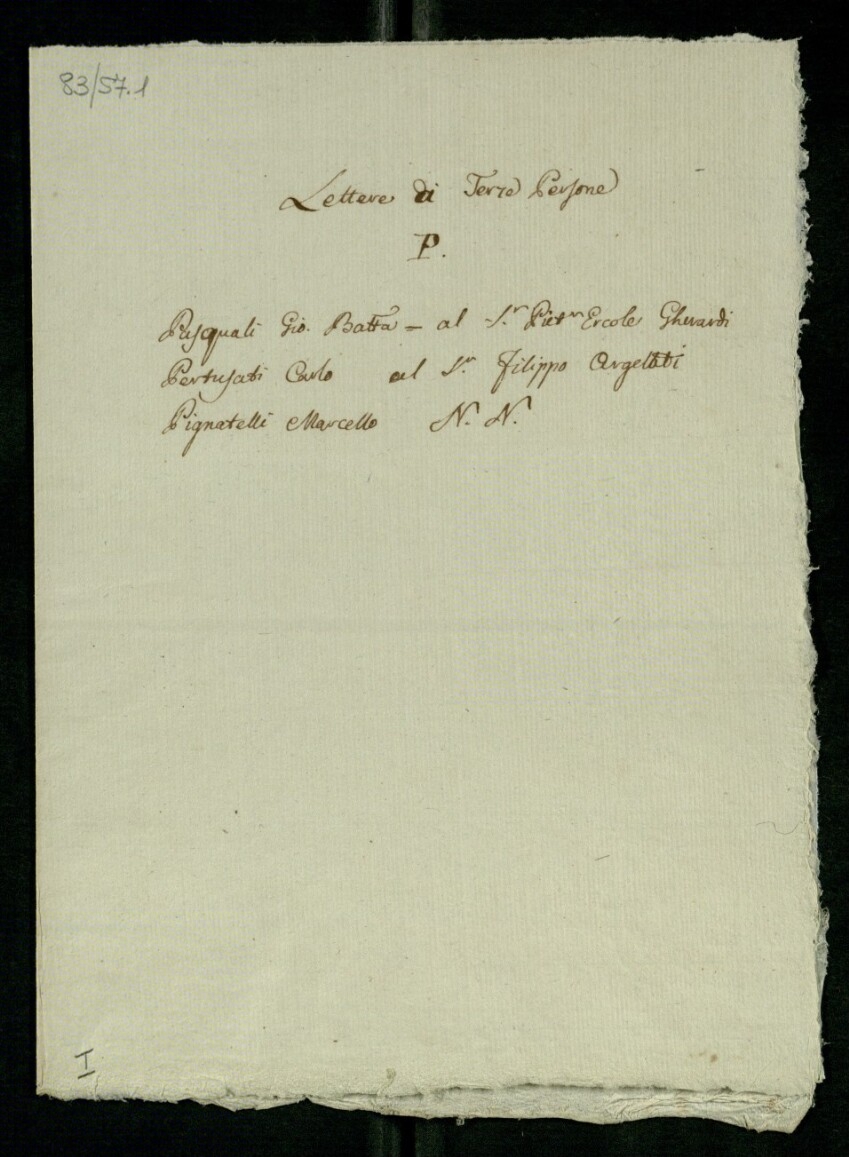 83/57.1
Lettere di Terze Persone
P.
Pasquali Gio. Batta – al S.r Piet.ro Ercole Gherardi
Pertusati Carlo al S.r Filippo Argellati
Pignatelli Marcello N. N.
I